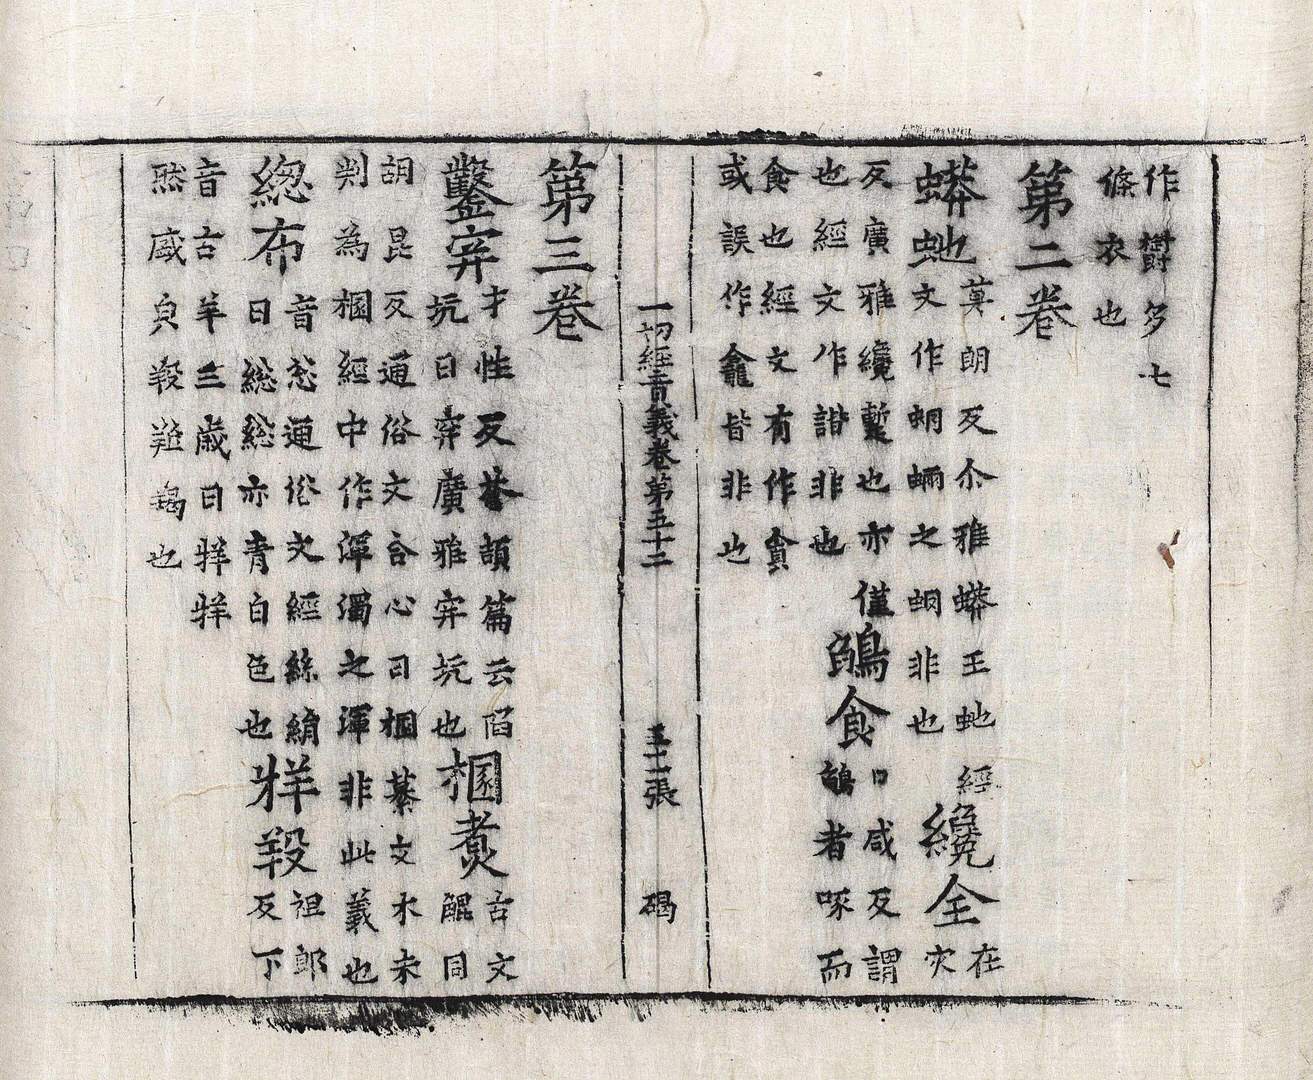 作欝多七
條衣也
第二卷
蟒虵
莫朗反尒雅蟒王虵經
文作蜩蜽之蜩非也
纔全
在
灾
反廣雅纔蹔也亦僅
也經文作諧非也
鵮食
口咸反謂
鵮者啄而
食也經文有作貪
或誤作龕皆非也
一切經音義卷第五十二
二張
碣
第三卷
鑿穽
才性反蒼頡篇云陷
坑曰穽廣雅穽坑也
棞煑
古文
䚠同
胡昆反通俗文合心曰棞纂文木未
判為棞經中作渾濁之渾非此義也
緫布
音忩通俗文經絲絹
曰緫緫亦青白色也
牂羖
祖郎
反下
音古羊三歲曰牂牂
羖羯也